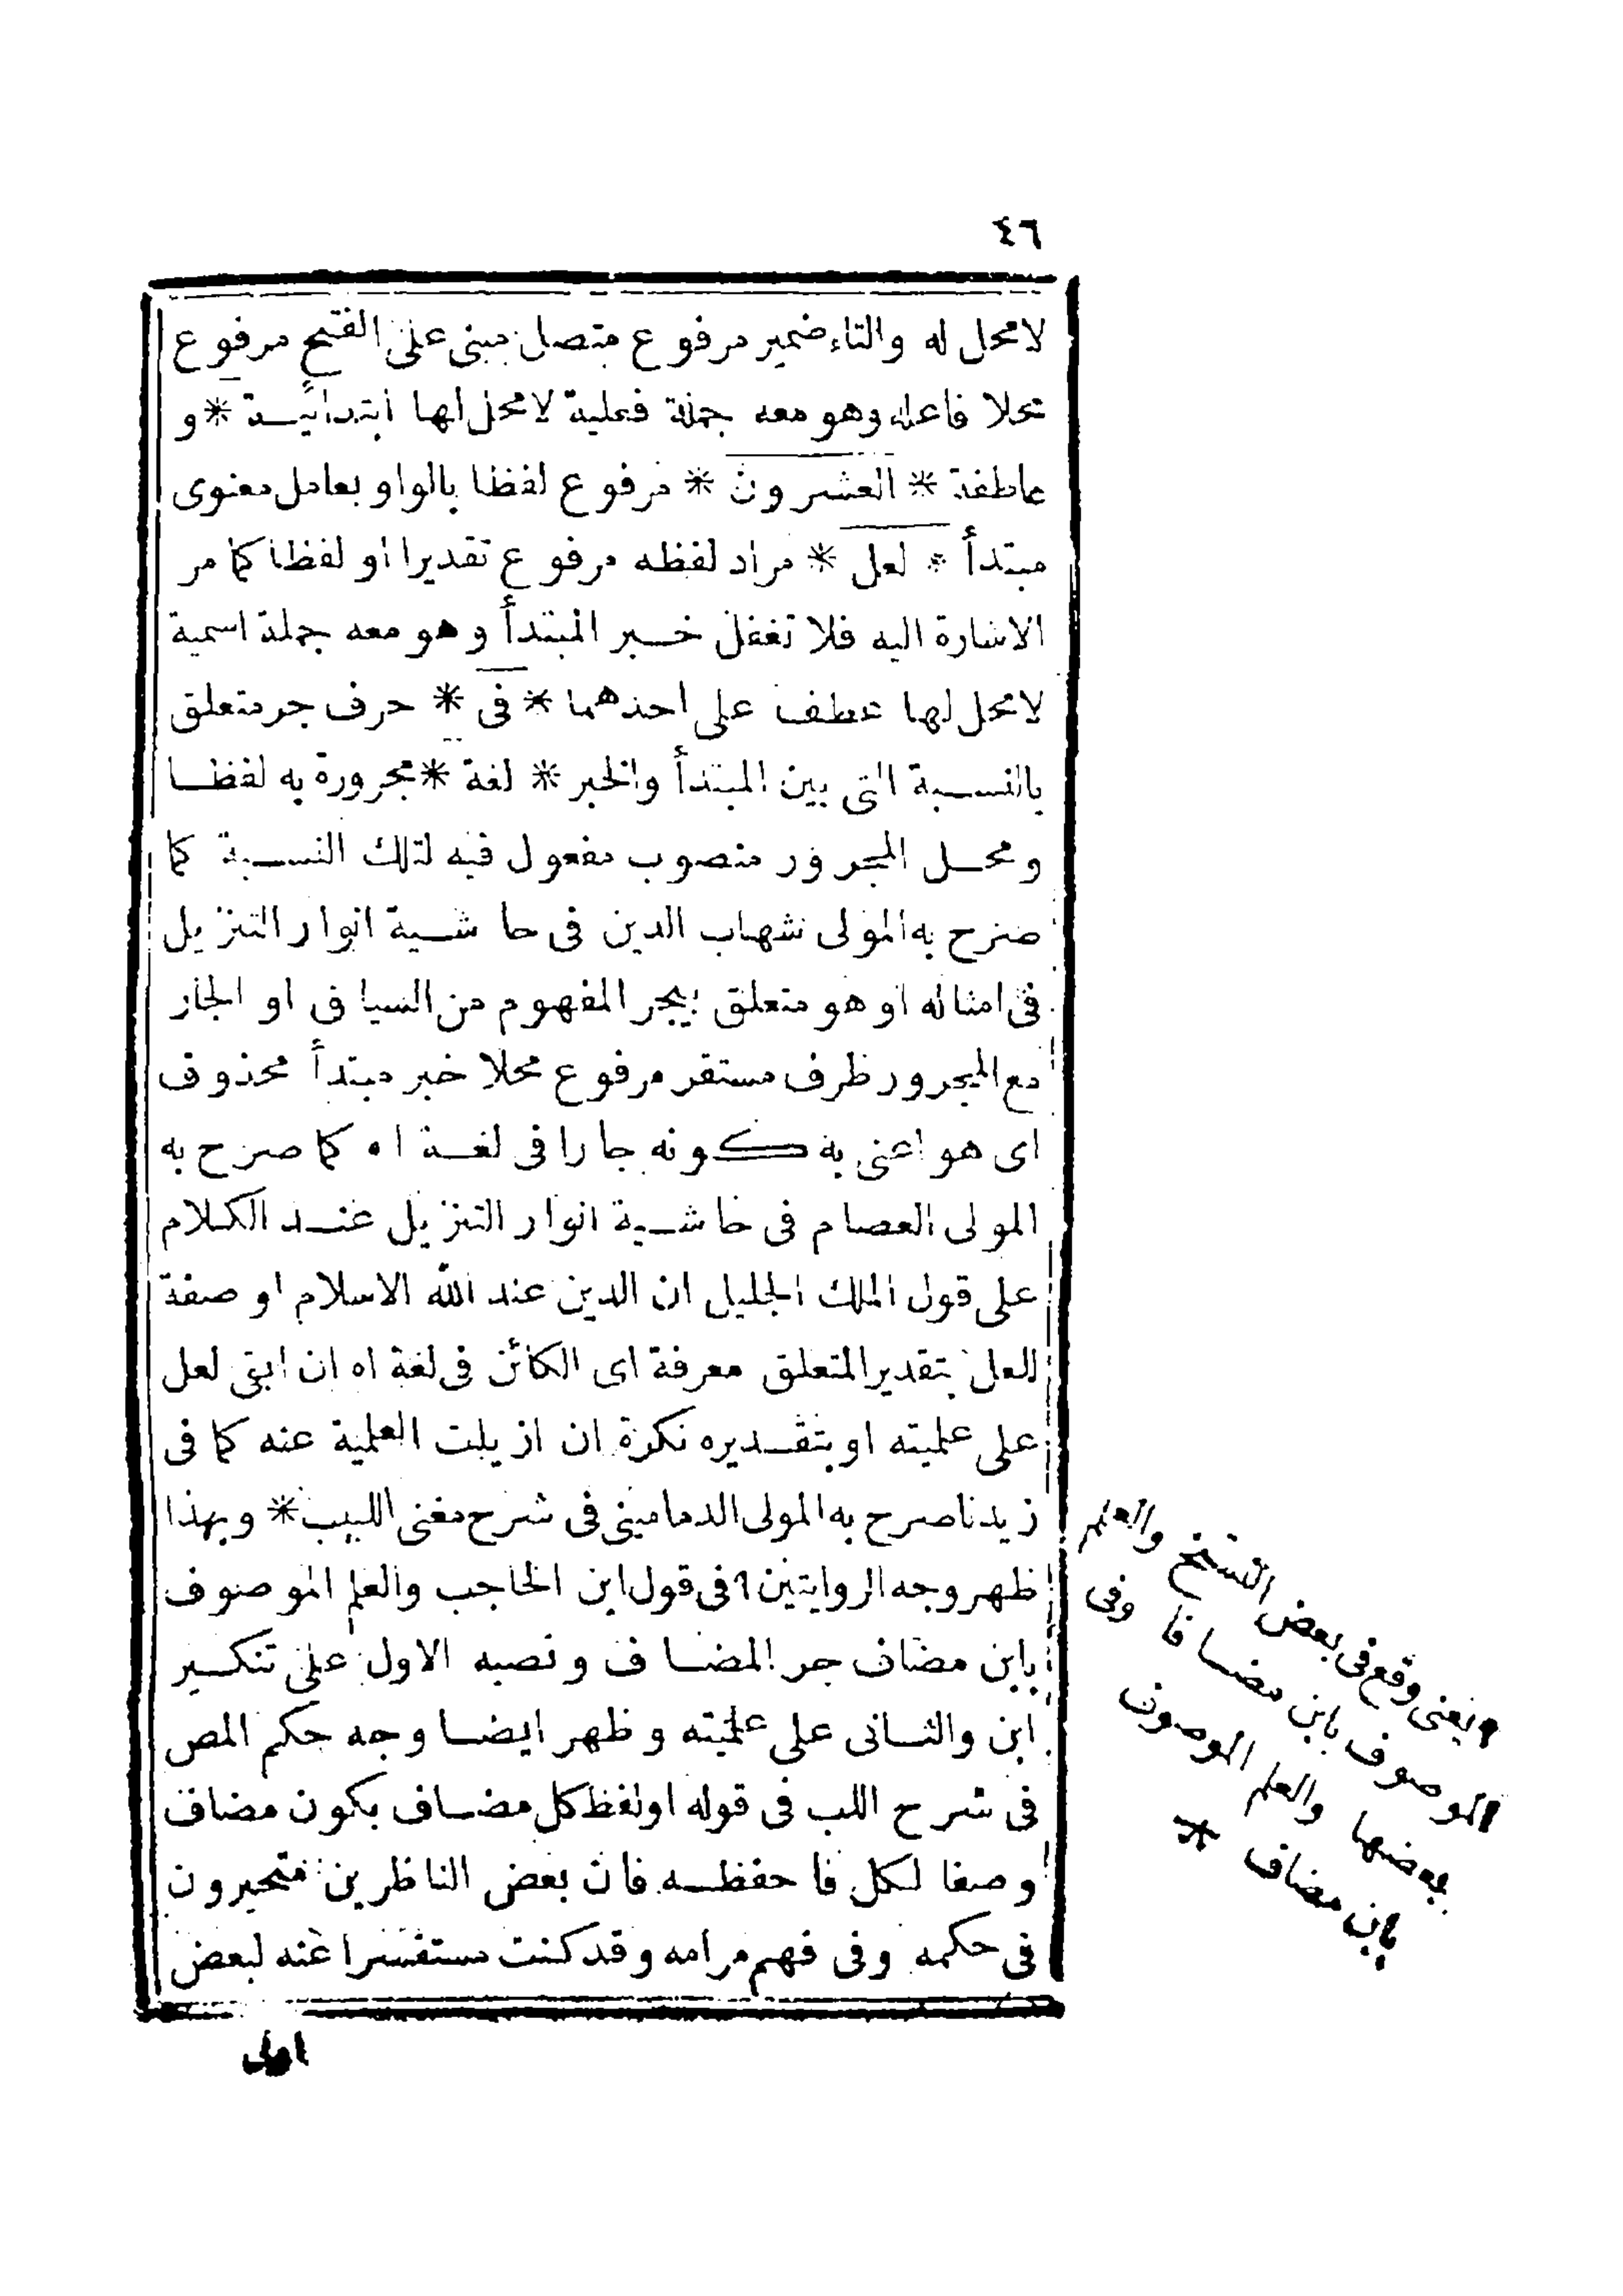 ٤٦
لا محل له والتاء ضمير مرفوع متصل مبنى على الفتح مرفوع
محلا فاعله وهو معه جملة فعلية لا محل لها ابتدائية * و
عاطفة * العشرون * مرفوع لفظا بالواو بعامل معنوى
مبتدأ * لعل * مراد لفظه مرفوع تقديرا او لفظا كما مر
الاشارة اليه فلا تغفل خبر المبتدأ وهو معه جملة اسمية
لا محل لها عطف على احدهما * فى * حرف جر متعلق
بالنسبة التى بين المبتدأ والخبر * لغة * مجرورة به لفظا
ومحل المجرور منصوب مفعول فيه لتلك النسبة كما
صرح به المولى شهاب الدين فى حاشية انوار التنزيل
فى امثاله او هو متعلق بيجر المفهوم من السياق او الجار
مع المجرور ظرف مستقر مرفوع محلا خبر مبتدأ محذوف
اى هو اعنى به كونه جارا فى لغة اه كما صرح به
المولى العصام فى حاشية انوار التنزيل عند الكلام
على قول الملك الجليل ان الدين عند الله الاسلام او صفة
للعل بتقدير المتعلق معرفة اى الكائن فى لغة اه ان ابقى لعل
على علميته او بتقديره نكرة ان ازيلت العلمية عنه كما فى
زيدنا صرح به المولى الدمامينى فى شرح مغنى اللبيب * وبهذا
ظهر وجه الروايتين ٩ فى قول ابن الحاجب والعلم الموصوف
بابن مضاف جر المضاف ونصبه الاول على تنكير
ابن والثانى على علميته وظهر ايضا وجه حكم المص
فى شرح اللب فى قوله او لفظ كل مضاف بكون مضاف
وصفا لكل فاحفظه فان بعض الناظرين متحيرون
فى حكمه وفى فهم مرامه وقد كنت مستفسرا عنه لبعض
يعنى وقع فى بعض النسخ والعلم
الموصوف بابن مضافا وفى
بعضها والعلم الموصوف
بابن مضاف *